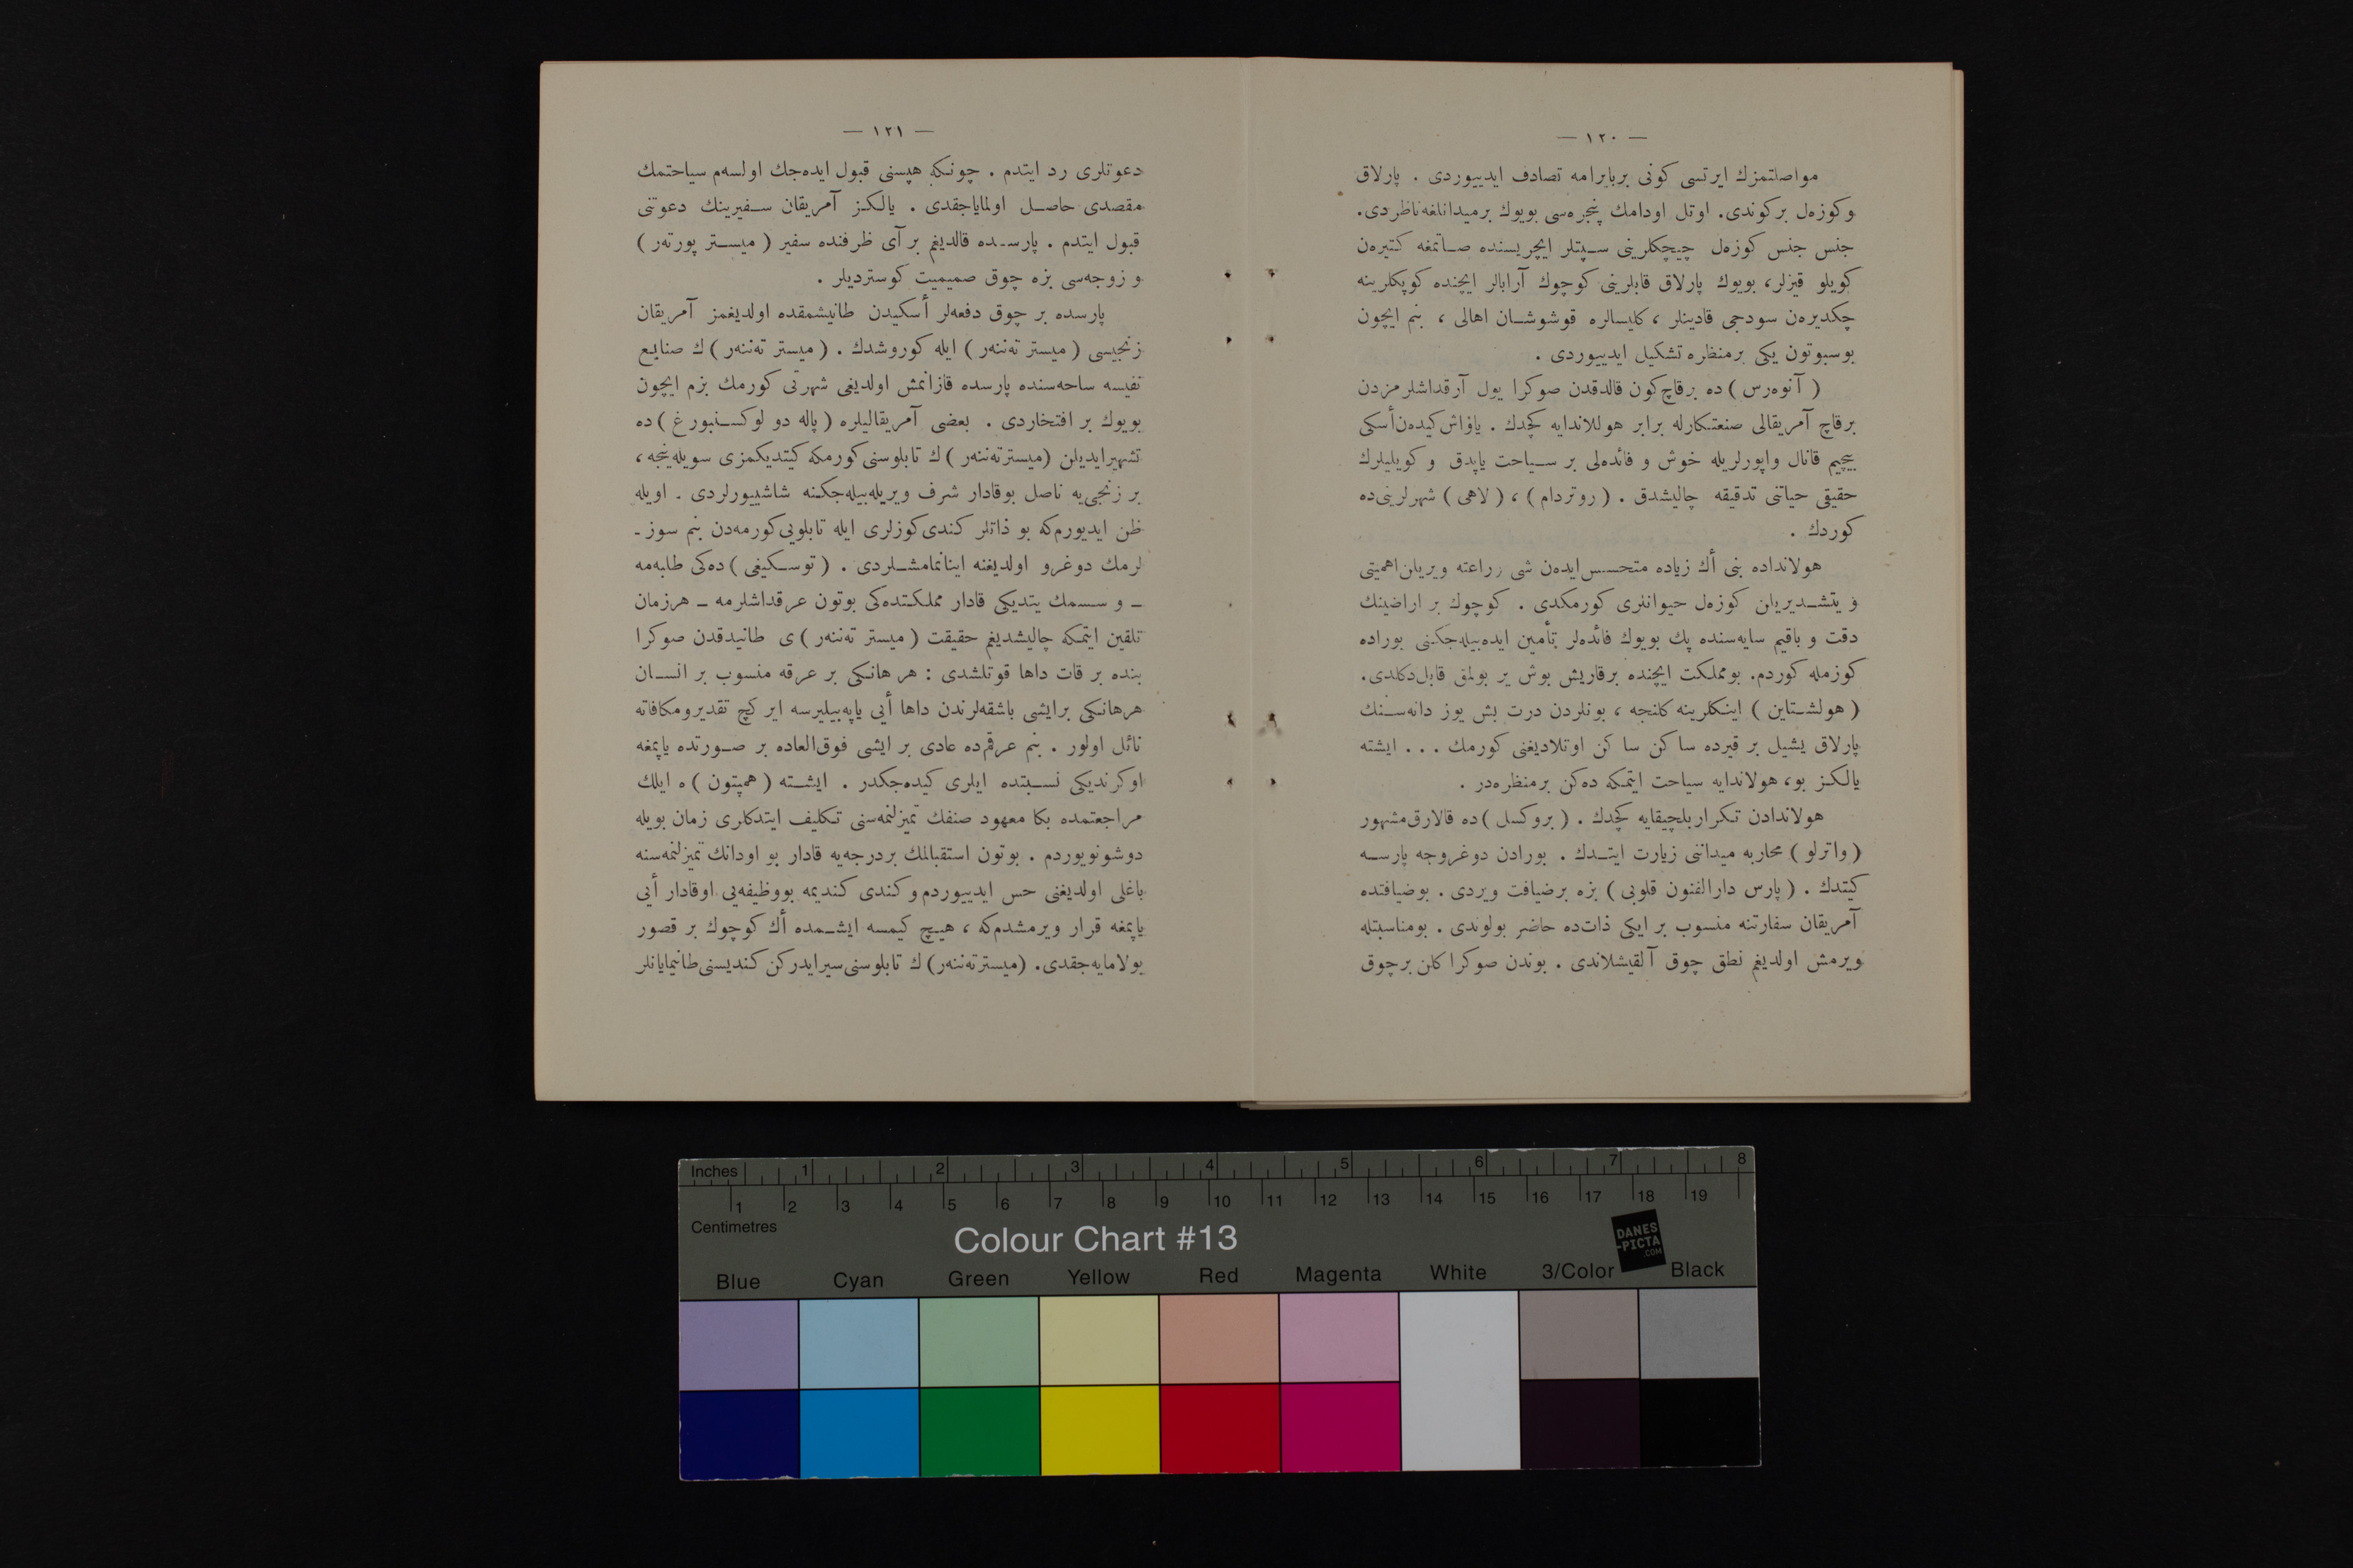 — ١٢٠ —
مواصلتمزك ايرتسى كونى بربايرامه تصادف ايدييوردى . پارلاق
وكوزه‌ل بركوندى. اوتل اودامك پنجره‌سى بويوك برميدانلغه ناظردى.
جنس جنس كوزه‌ل چيچكلرينى سپتلر ايچريسنده صاتمغه كتيره‌ن
كويلو قيزلر، بويوك پارلاق قابلرينى كوچوك آرابالر ايچنده كوپكلرينه
چكديره‌ن سودجى قادينلر ، كليسالره قوشوشان اهالى ، بنم ايچون
بوسبوتون يكى برمنظره تشكيل ايدييوردى .
( آنوه‌رس ) ده برقاچ كون قالدقدن صوكرا يول آرقداشلرمزدن
برقاچ آمريقالى صنعتكارله برابر هوللاندايه كچدك . ياواش كيده‌ن أسكى
بيچيم قانال واپورلريله خوش و فائده‌لى بر سياحت ياپدق و كويليلرك
حقيقى حياتنى تدقيقه چاليشدق . ( روتردام ) ، ( لاهى ) شهرلرينى ده
كوردك .
هولانداده بنى أك زياده متحسس ايده‌ن شى زراعته ويريلن اهميتى
و يتشديريلن كوزه‌ل حيوانلرى كورمكدى . كوچوك بر اراضينك
دقت و باقيم سايه‌سنده پك بويوك فائده‌لر تأمين ايده‌بيله‌جكنى بوراده
كوزمله كوردم. بومملكت ايچنده برقاريش بوش ير بولمق قابل دكلدى.
( هولشتاين ) اينكلرينه كلنجه ، بونلردن درت بش يوز دانه‌سنك
پارلاق يشيل بر قيرده ساكن ساكن اوتلاديغنى كورمك . . . ايشته
يالكز بو، هولاندايه سياحت ايتمكه ده‌كن برمنظره‌در .
هولاندادن تكرار بلچيقايه كچدك . ( بروكسل ) ده قالارق مشهور
( واترلو ) محاربه ميداننى زيارت ايتدك . بورادن دوغروجه پارسه
كيتدك . ( پارس دارالفنون قلوبى ) بزه برضيافت ويردى . بوضيافتده
آمريقان سفارتنه منسوب بر ايكى ذات ده حاضر بولوندى . بومناسبتله
ويرمش اولديغم نطق چوق آلقيشلاندى . بوندن صوكرا كلن برچوق
— ١٢١ —
دعوتلرى رد ايتدم . چونكه هپسنى قبول ايده‌جك اولسه‌م سياحتمك
مقصدى حاصل اولماياجقدى . يالكز آمريقان سفيرينك دعوتنى
قبول ايتدم . پارسده قالديغم بر آى ظرفنده سفير ( ميستر پورتەر )
و زوجه‌سى بزه چوق صميميت كوسترديلر .
پارسده بر چوق دفعه‌لر أسكيدن طانيشمقده اولديغمز آمريقان
زنجيسى ( ميستر تەننەر ) ايله كوروشدك . ( ميستر تەننەر ) ك صنايع
نفيسه ساحه‌سنده پارسده قازانمش اولديغى شهرتى كورمك بزم ايچون
بويوك بر افتخاردى . بعضى آمريقاليلره ( پاله دو لوكسنبورغ ) ده
تشهير ايديلن (ميستر تەننەر ) ك تابلوسنى كورمكه كيتديكمزى سويله‌ينجه ،
بر زنجى‌يه ناصل بوقادار شرف ويريله‌بيله‌جكنه شاشييورلردى . اويله
ظن ايديورم كه بو ذاتلر كندى كوزلرى ايله تابلويى كورمه‌دن بنم سوز ـ
لرمك دوغرو اولديغنه اينانمامشلردى . ( توسكيغى ) ده‌كى طلبه‌مه
ـ و سسمك يتديكى قادار مملكتده‌كى بوتون عرقداشلرمه ـ هرزمان
تلقين ايتمكه چاليشديغم حقيقت ( ميستر تەننەر ) ى طانيدقدن صوكرا
بنده بر قات داها قوتلشدى : هر هانكى بر عرقه منسوب بر انسان
هرهانكى برايشى باشقه‌لرندن داها أيى ياپه‌بيليرسه اير كچ تقدير ومكافاته
نائل اولور . بنم عرقم ده عادى بر ايشى فوق‌العاده بر صورتده ياپمغه
اوكرنديكى نسبتده ايلرى كيده‌جكدر . ايشته ( همپتون ) ه ايلك
مراجعتمده بكا معهود صنفك تميزلنمه‌سنى تكليف ايتدكلرى زمان بويله
دوشونويوردم . بوتون استقبالمك بردرجه‌يه قادار بو اودانك تميزلنمه‌سنه
باغلى اولديغنى حس ايدييوردم و كندى كنديمه بووظيفه‌يى اوقادار أيى
ياپمغه قرار ويرمشدم كه ، هيچ كيمسه ايشمده أك كوچوك بر قصور
بولامايه‌جقدى. (ميستر تەننەر) ك تابلوسنى سير ايدركن كنديسنى طانيمايانلر
Inches 1 2 3 4 5 6 7 8
1 2 3 4 5 6 7 8 9 10 11 12 13 14 15 16 17 18 19
Centimetres
Colour Chart #13
DANES
-PICTA
.COM
Blue Cyan Green Yellow Red Magenta White 3/Color Black